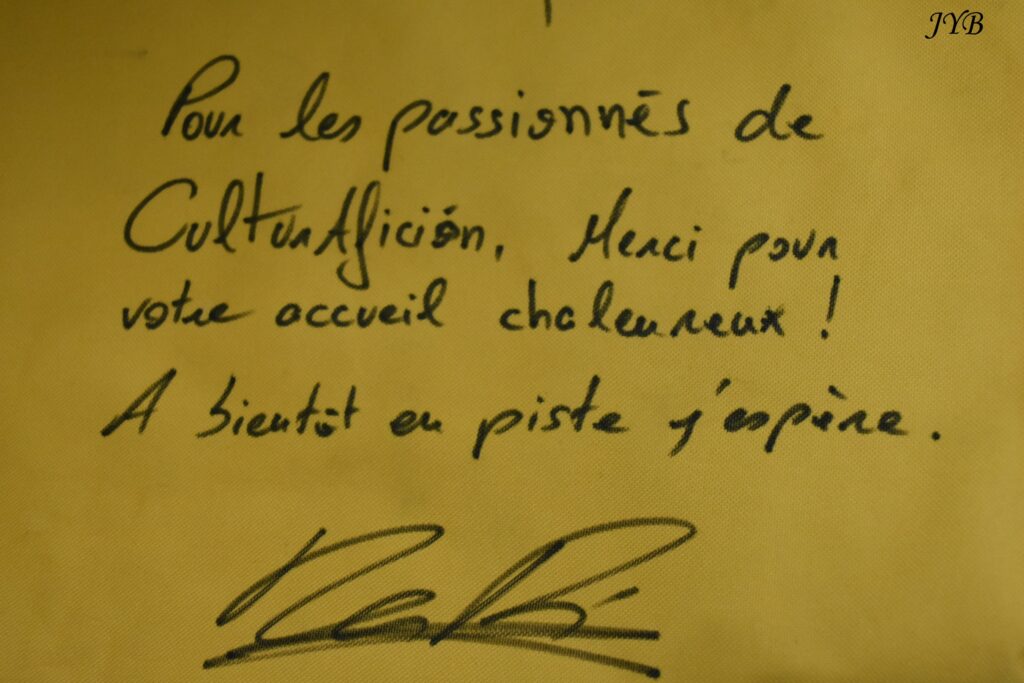 JYB
Pour les passionnés de
CulturAfición, Merci pour
votre accueil chaleureux !
A bientôt en piste j'espère.